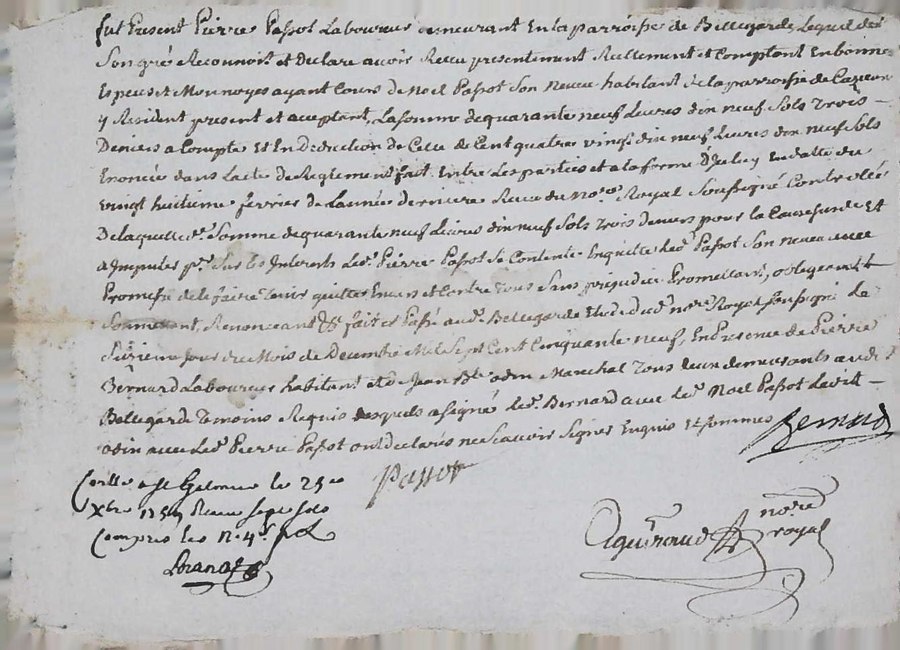 fut Present Pierre Passot Laboureur demeurant En la parroisse de Bellegarde, Lequel de
Son gré Reconnoit et Declare avoir Receu presentement Reellement et Comptant En bonnes
Especes et Monnoyes ayant Cours de Noel Passot Son Neveu habitant de la parroisse de
y Résident present et aceptant, La somme de quarante neuf Livres dix neuf Sols trois
Deniers a Compte Et En Deduction de Celle de Cent quatre vingt dix neuf Livres dix neuf Sols
Enoncée dans Lacte de Reglement fait Entre Les parties et a la forme D'Iceluy En datte du
vingt huitieme fevrier de Lannée derniere Receu du no.re Royal Soussigné Controllé
De laquelle d. Somme de quarante neuf Livres dix neuf Sols trois deniers pour la Cause susd. Et
a Imputer p. Sur les Interests Led. Pierre Passot Se Contente En quitte led. Passot Son neveu avec
Promesse de le faire tenir quitte Envers et Contre tous Sans prejudice Promettant, obligeant
Soumettant, Renonceant &c fait et Passé aud. Bellegarde Etude du no.re Royal Soussigné Le
Jour du Mois de Decembre Mil Sept Cent Cinquante neuf, En Presence de Pierre
Bernard Laboureur habitant et de Jean B.te odin Marechal tous deux demeurants aud.
Bellegarde temoins Requis desquels a signé led. Bernard avec led. Noel Passot Ledit
odin avec Led. Pierre Passot ont declarés ne Scavoir Signer Enquis Et Sommés
Bernard
Passot
Con.llé a St Galmier le 25e
Xbre 1759 Receu sept sols
Compris les n. 4 s. p. L.
no.re
royal